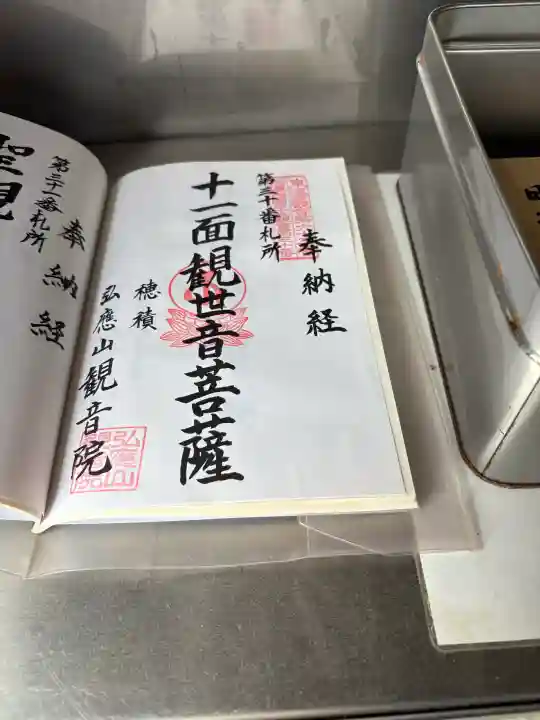 奉納経
第三十番札所
十一面観世音菩薩
穂積
弘應山観音院
弘應山
聖観
第三十一番札所
奉納経